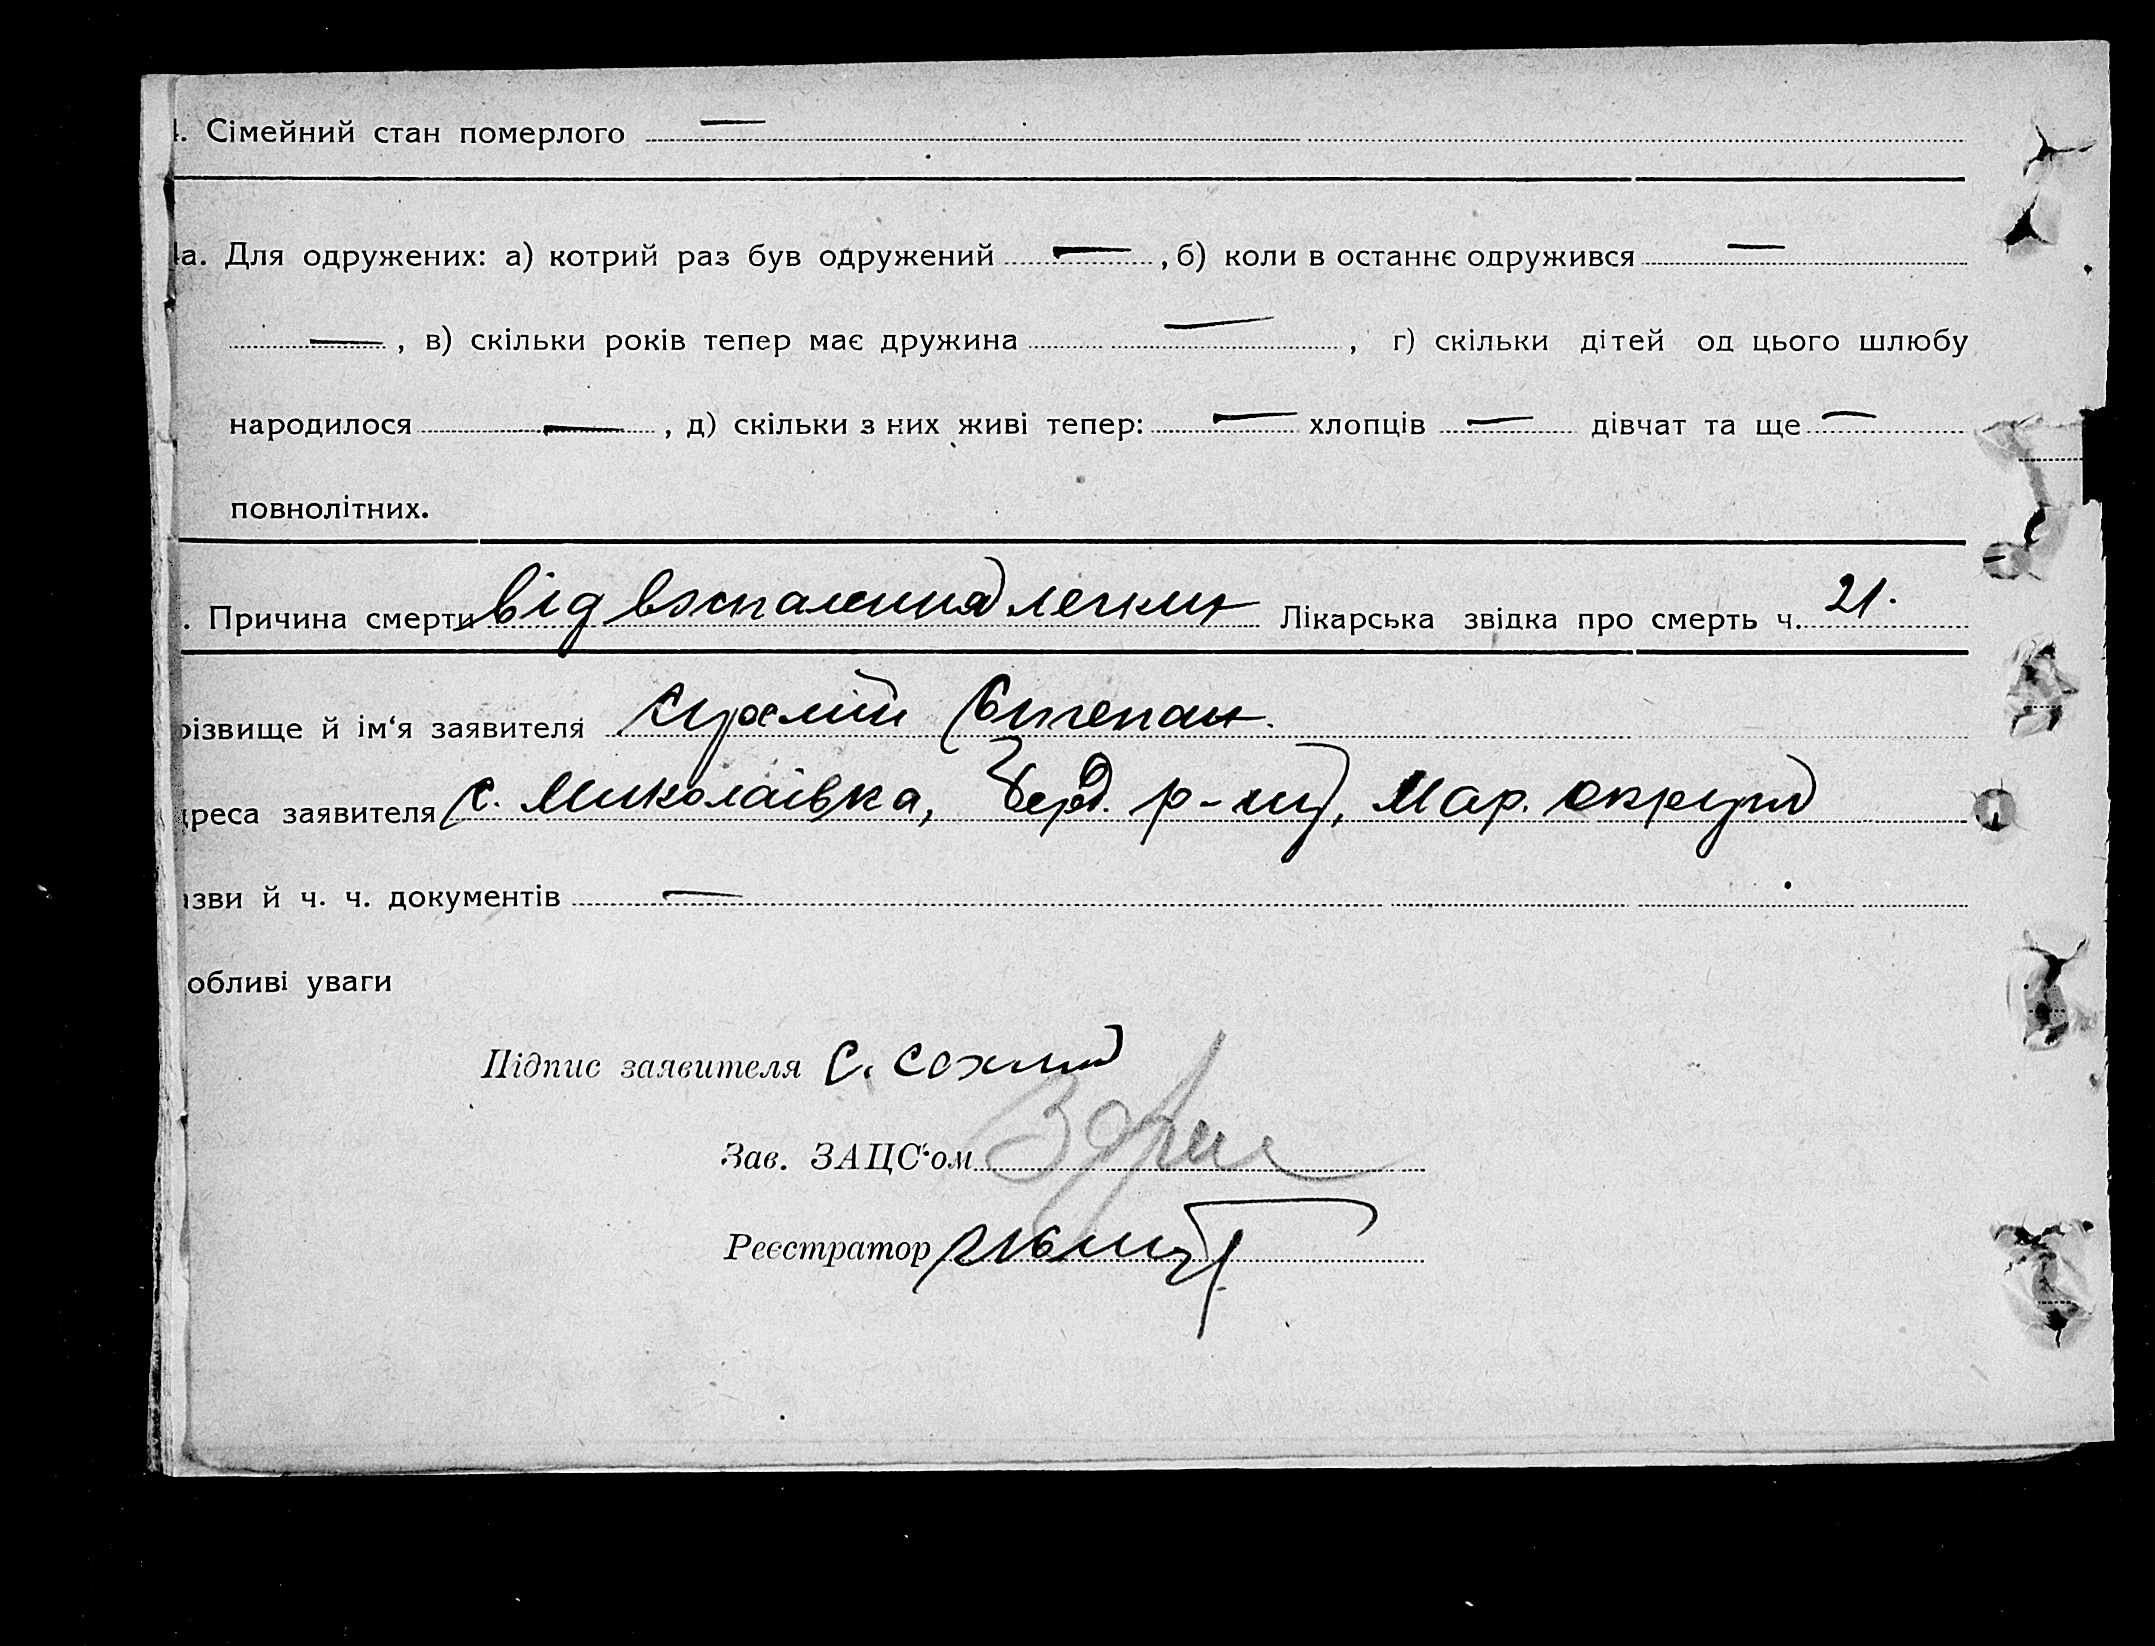 . Сімейний стан померлого —
а. Для одружених: а) котрий раз був одружений — , б) коли в останнє одружився —
— , в) скільки років тепер має дружина — , г) скільки дітей од цього шлюбу
народилося — , д) скільки з них живі тепер: — хлопців — дівчат та ще —
повнолітних.
. Причина смерти від воспаления легких Лікарська звідка про смерть ч. 21.
різвище й ім'я заявителя Степан.
дреса заявителя с. Миколаівка, Берд. р-ну, Мар. округи
азви й ч. ч. документів —
обливі уваги
Підпис заявителя С.
Зав. ЗАЦС'ом
Реєстратор